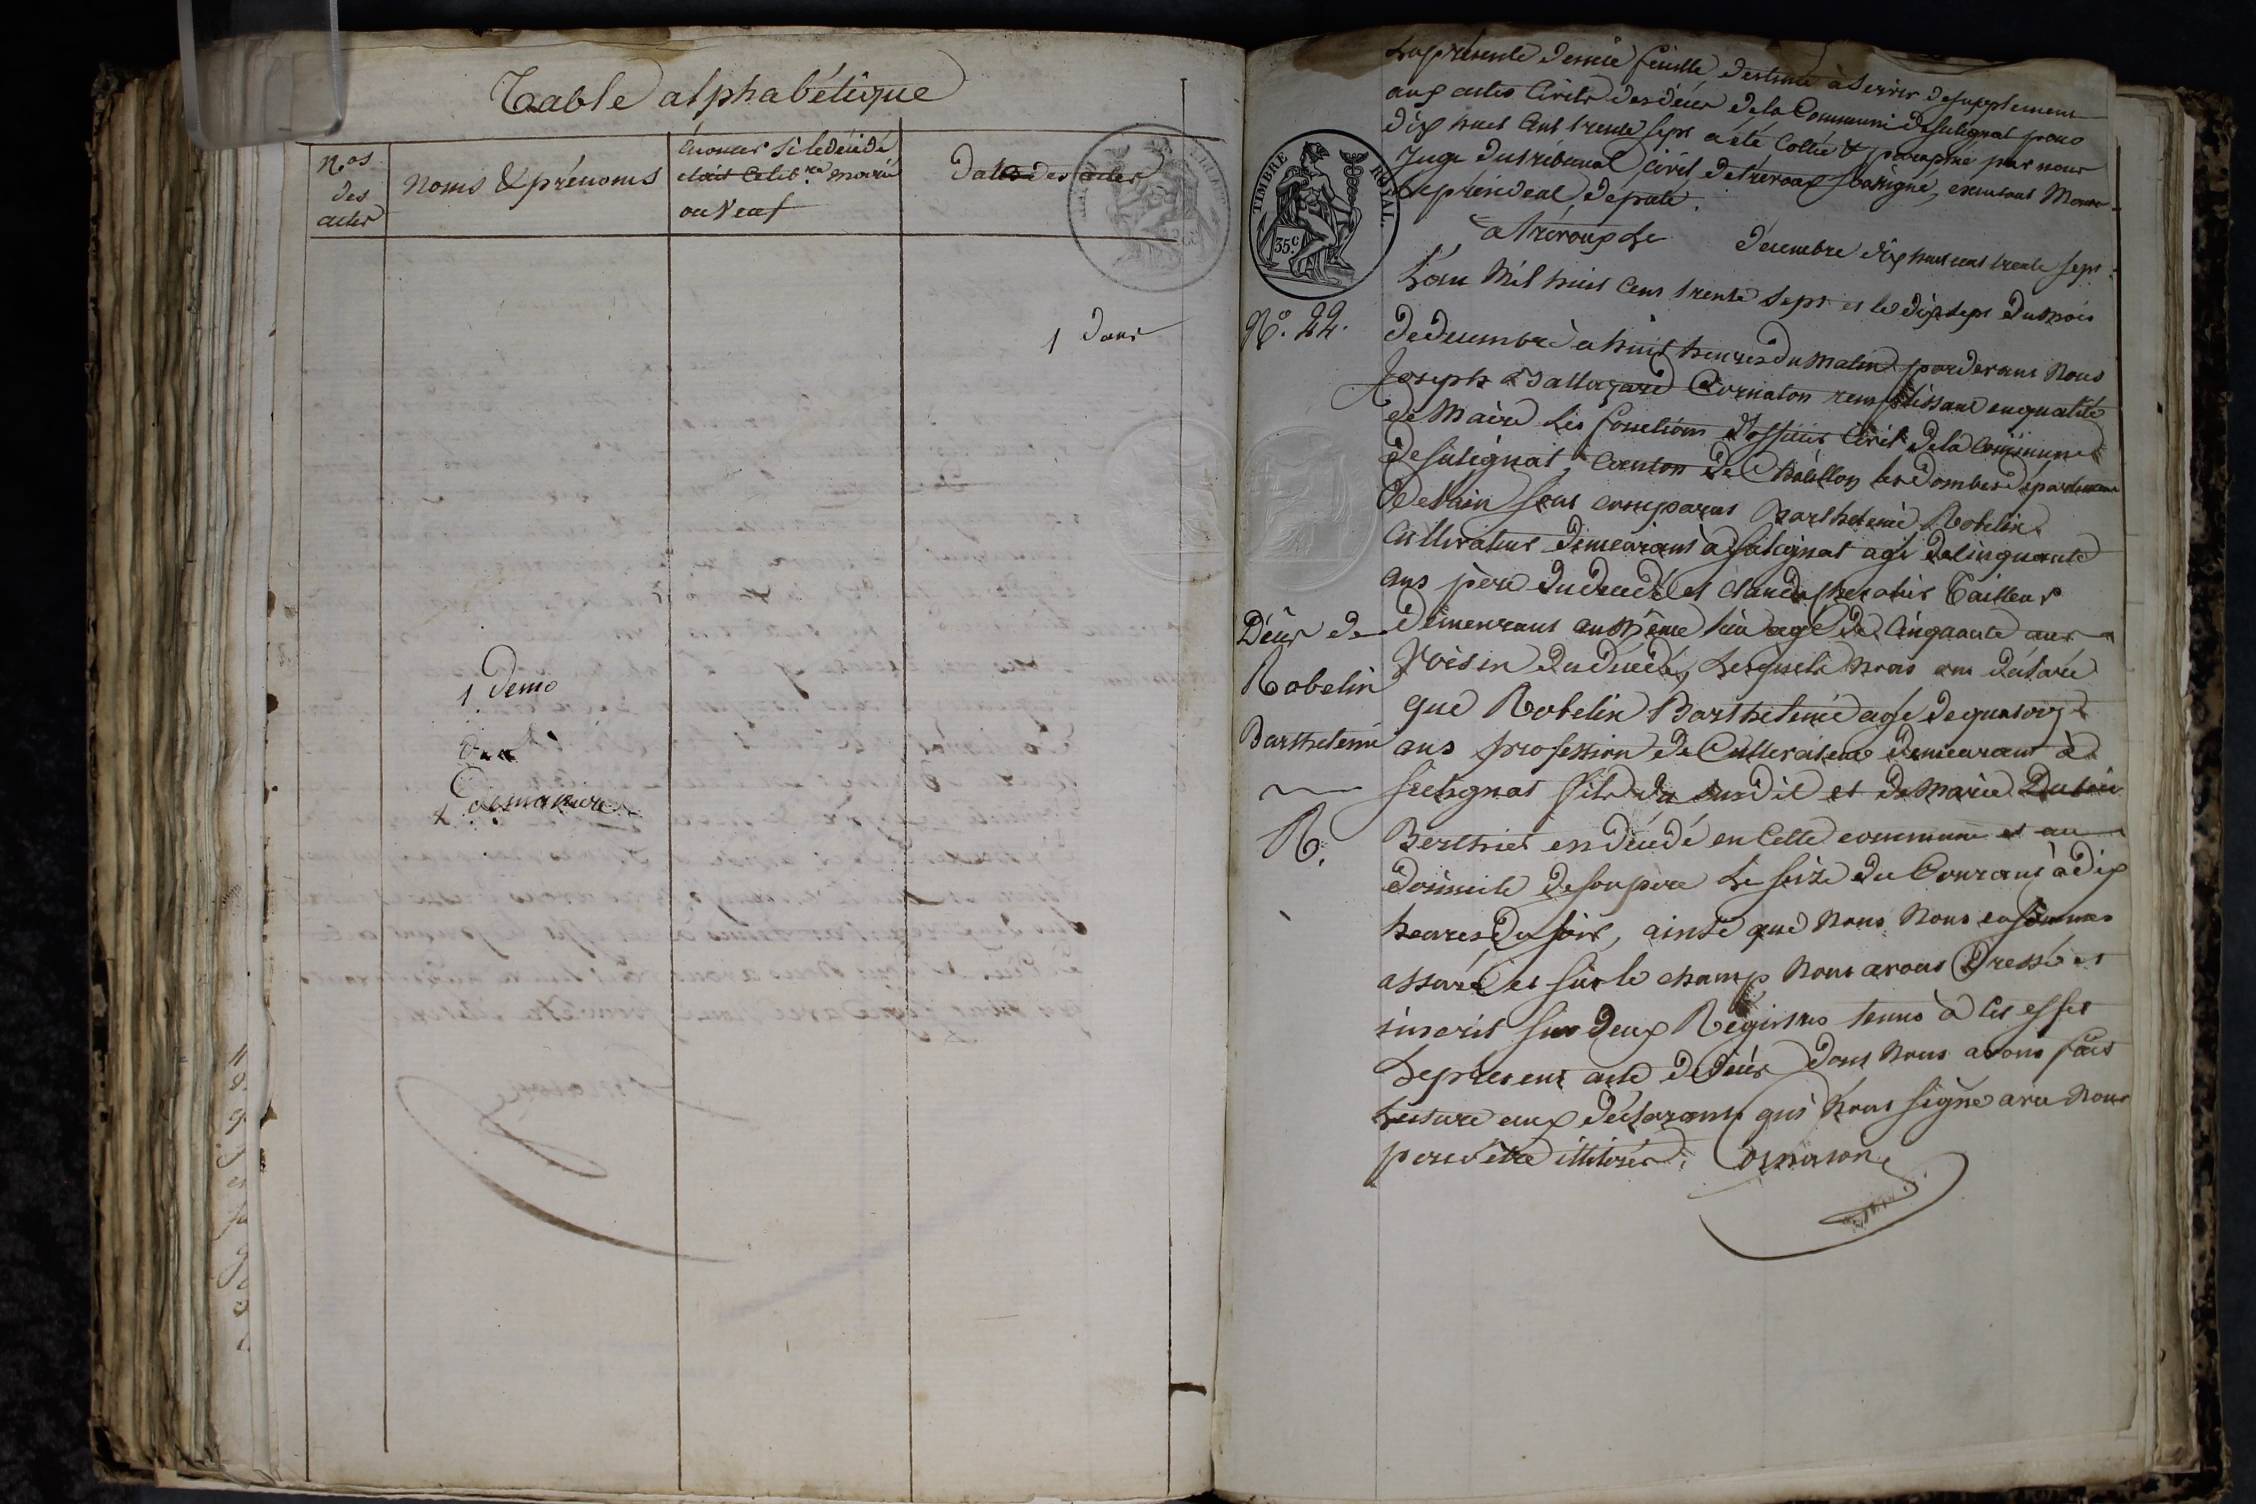 Table alphabétique
Nos
des
actes
Noms & prénoms
énoncer si le décédé
étoit célibre marié
ou veuf
Dates des actes
1 Dans
1 Demo
Demaniere
La présente demie feuille destinée à servir de supplement
aux actes Civils des décès de la Commune de Sulignat pour
dix huit Cent trente sept a été Cottée & paraphée par nous
Juge du tribunal Civil de Trévoux soussigné,
le président député.
a Trévoux Le Décembre dix huit cent trente sept.
TIMBRE ROYAL.
35 c
No. 22.
L'an Mil huit Cent trente Sept et le dix sept du mois
de decembre à huit heures du Matin pardevant Nous
Joseph Baltazard Cornaton remplissant en qualité
de Maire Les fonctions d'officier Civil de la Commune
de Sulignat, Canton de Châtillon les Dombes département
de l'ain sont comparus Barthelemi Robelin
Cultivateur demeurant à Sulignat agé de Cinquante
ans père du décédé et Claude Chevalier Tailleur
Décès de
demeurant au même lieu agé de Cinquante ans
Robelin
Voisin du décédé, Lesquels nous ont déclaré
que Robelin Barthelemi agé de quatorze
Barthelemi
ans profession de Cultivateur demeurant à
Sulignat fils du susdit et de Marie
R.
Berthier est décédé en Cette commune et au
domicile de son père Le seize du Courant à dix
heures du soir, ainsi que Nous Nous en sommes
assuré et sur le champ Nous avons Dressé et
inscrit sur deux Registres tenus à Cet effet
Le présent acte de Décès dont Nous avons fait
Lecture aux déclarants qui n'ont signé avec Nous
pour être illitérés. Cornaton